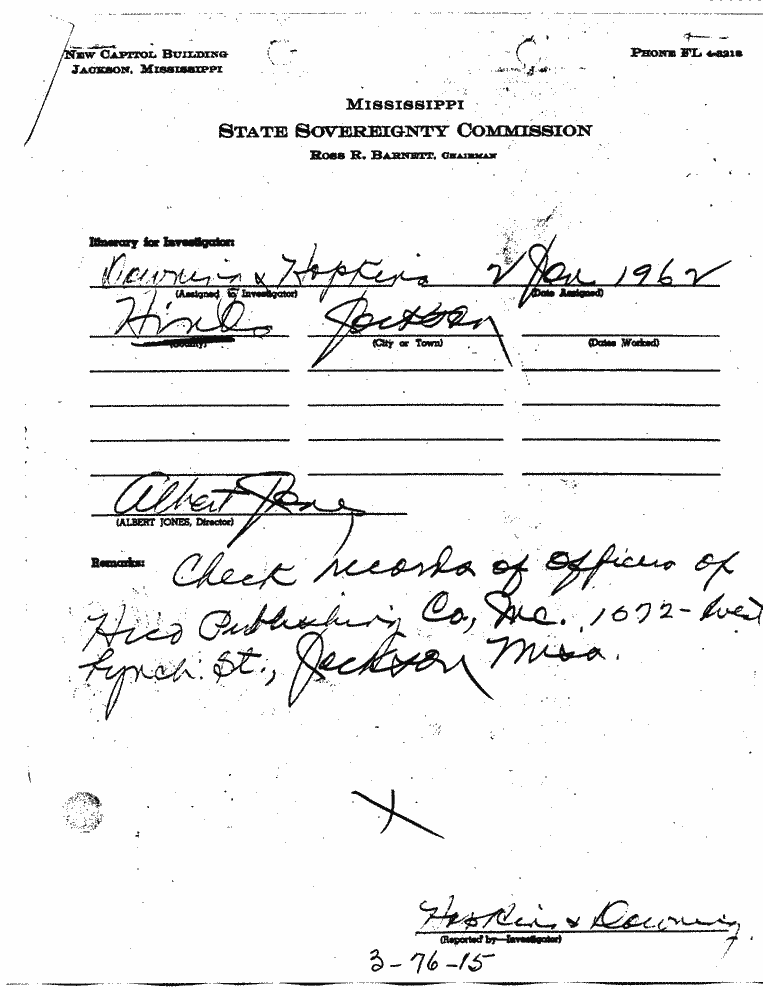 NEW CAPITOL BUILDING
JACKSON, MISSISSIPPI
PHONE FL 4-3218
MISSISSIPPI
STATE SOVEREIGNTY COMMISSION
ROSS R. BARNETT, CHAIRMAN
Itinerary for Investigator:
Downing & Hopkins 2 Jan 1962
(Assigned to Investigator) (Date Assigned)
Hinds Jackson
(County) (City or Town) (Dates Worked)
Albert Jones
(ALBERT JONES, Director)
Remarks: Check records of officers of
Hico Publishing Co., Inc. 1072- West
Lynch St., Jackson Miss.
Hopkins & Downing
(Reported by—Investigator)
3-76-15